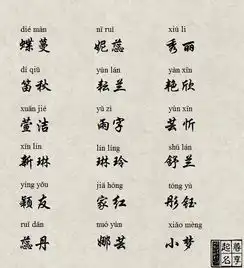 dié màn nī ruǐ xiù lì
蝶蔓 妮蕊 秀丽
dí qiū yún lán yàn xīn
笛秋 耘兰 艳欣
xuān jié yǔ zì yún xīn
萱洁 雨字 芸忻
xīn lín lín líng shū lán
新琳 琳玲 舒兰
yǐng yǒu jiā hóng tóng yù
颖友 家红 彤钰
ruǐ dān nuó yún xiǎo mèng
蕊丹 娜芸 小梦
尊享起名